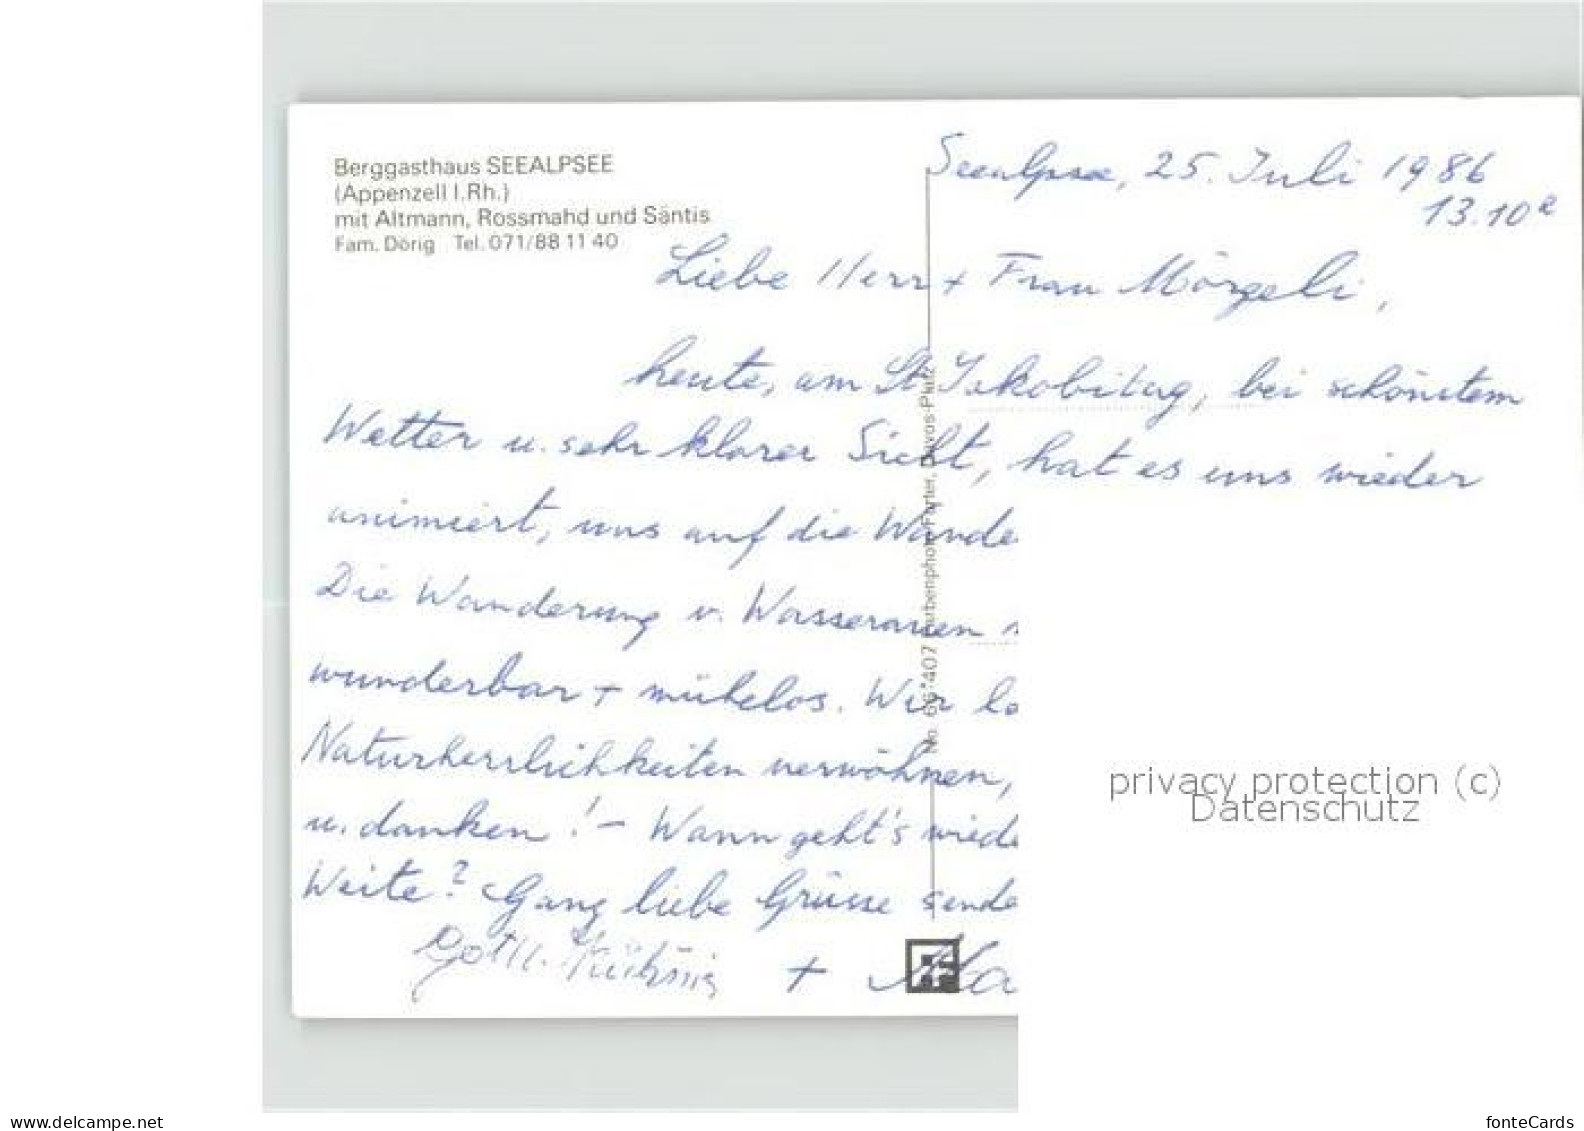 Berggasthaus SEEALPSEE
(Appenzell I.Rh.)
mit Altmann, Rossmahd und Säntis
Fam. Dörig Tel. 071/88 11 40
Seealpsee, 25. Juli 1986
13.10
Liebe Herr + Frau Mörgeli,
heute, am St. Jakobitag, bei schönstem
Wetter u. sehr klarer Sicht, hat es uns wieder
animiert, uns auf die Wande
Die Wanderung v. Wasserauen
wunderbar + mühelos. Wir la
Naturherrlichkeiten verwöhnen,
u. danken! – Wann geht's wiede
Weite? Ganz liebe Grüsse sende
Gottl.
+ Ma
No. 66'407 Farbenphoto Furter, Davos-Platz
FF
privacy protection (c)
Datenschutz
www.delcampe.net
fonteCards